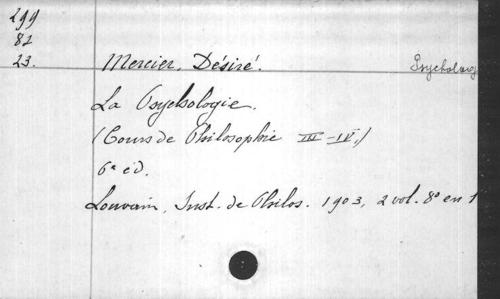 299
82
23.
Mercier, Désiré.
Psycholog
La Psychologie.
(Cours de Philosophie III-IV.)
6e éd.
Louvain, Inst. de Philos. 1903, 2 vol. 8° en 1